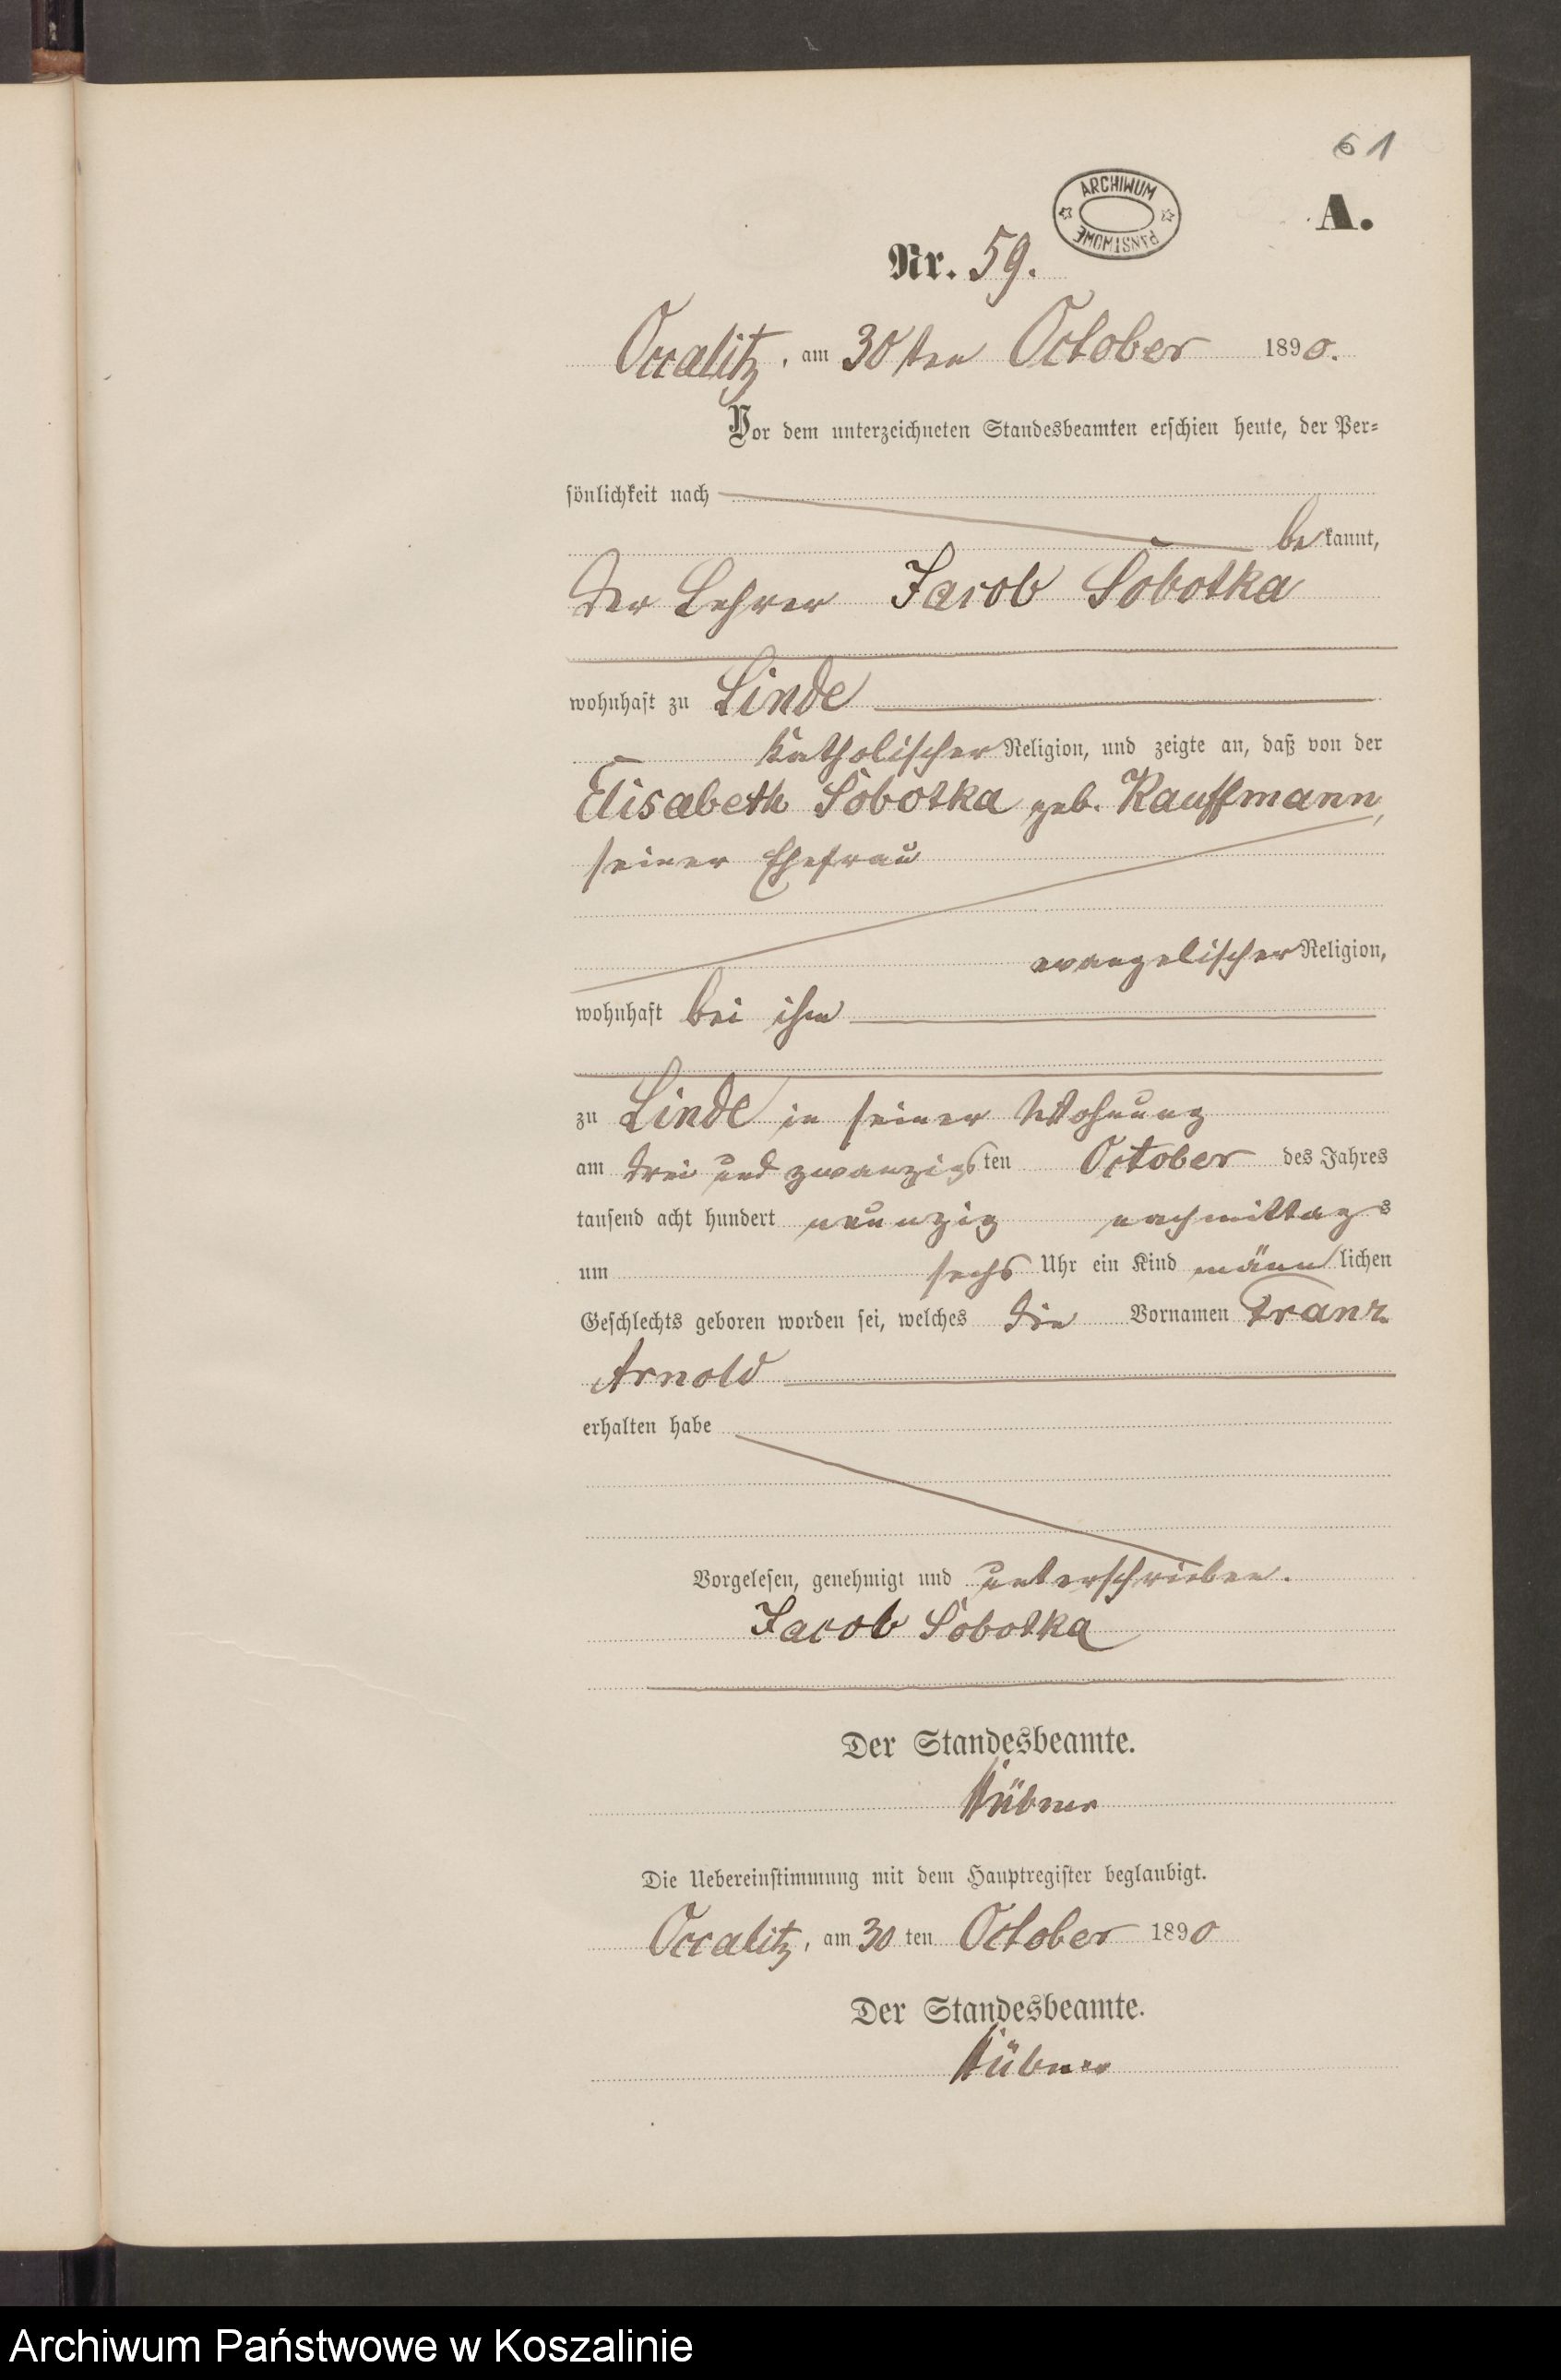 61
ARCHIWUM
PAŃSTWOWE
A.
Nr. 59.
Occalitz, am 30ten October 1890.
Vor dem unterzeichneten Standesbeamten erschien heute, der Per=
sönlichkeit nach
bekannt,
der Lehrer Jacob Sobotka
wohnhaft zu Linde
katholischer Religion, und zeigte an, daß von der
Elisabeth Sobotka geb. Kauffmann,
seiner Ehefrau
evangelischer Religion,
wohnhaft bei ihm
zu Linde in seiner Wohnung
am drei und zwanzigsten October des Jahres
tausend acht hundert neunzig nachmittags
um sechs Uhr ein Kind männlichen
Geschlechts geboren worden sei, welches die Vornamen Franz
Arnold
erhalten habe
Vorgelesen, genehmigt und unterschrieben.
Jacob Sobotka
Der Standesbeamte.
Hübner
Die Uebereinstimmung mit dem Hauptregister beglaubigt.
Occalitz, am 30ten October 1890
Der Standesbeamte.
Hübner
Archiwum Państwowe w Koszalinie